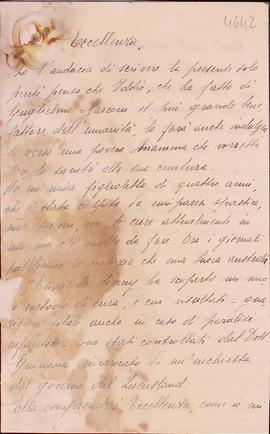 4642
Eccellenza,
Ho l'audacia di scrivere la presente solo
perché penso che Iddio, che ha fatto di
Guglielmo Marconi il più grande bene
fattore dell'umanità, lo farà anche indulgen
te verso una povera Mamma che vorrebbe
la sanità alla sua creatura.
Ho mia unica figlioletta di quattro anni,
che è stata colpita da una paresi spastica,
con le cure attualmente in
uso, non c'è molto da fare. Ora i giornali
pubblicano la notizia che una suora australiana
Elisabetta Kenny ha scoperto un nuo
vo metodo di cura, i cui risultati - gua
rigione totale anche in caso di paralisi
infantile - sono stati controllati dal Dott.
incaricato di un'inchiesta
dal governo del Queensland.
Ella comprenderà Eccellenza, come io mi